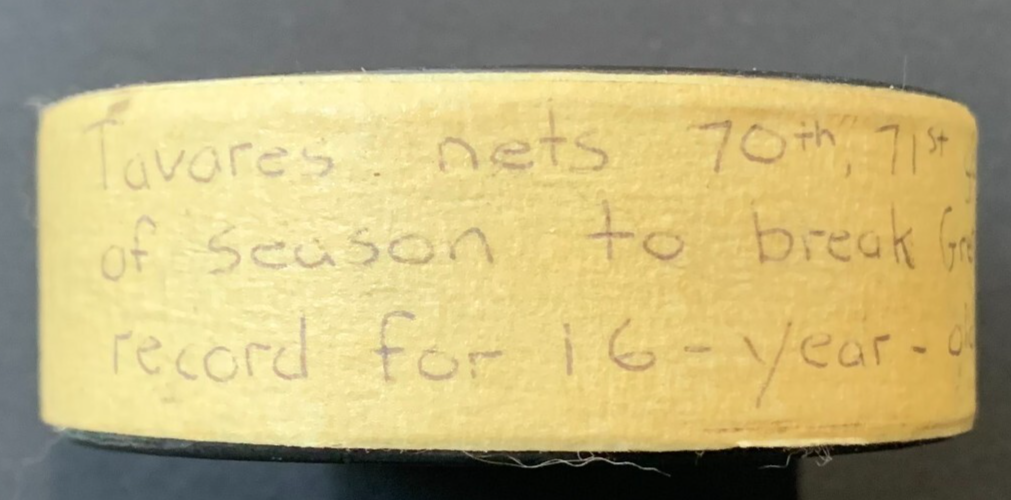 Tavares nets 70th, 71st
of season to break
record for 16-year-